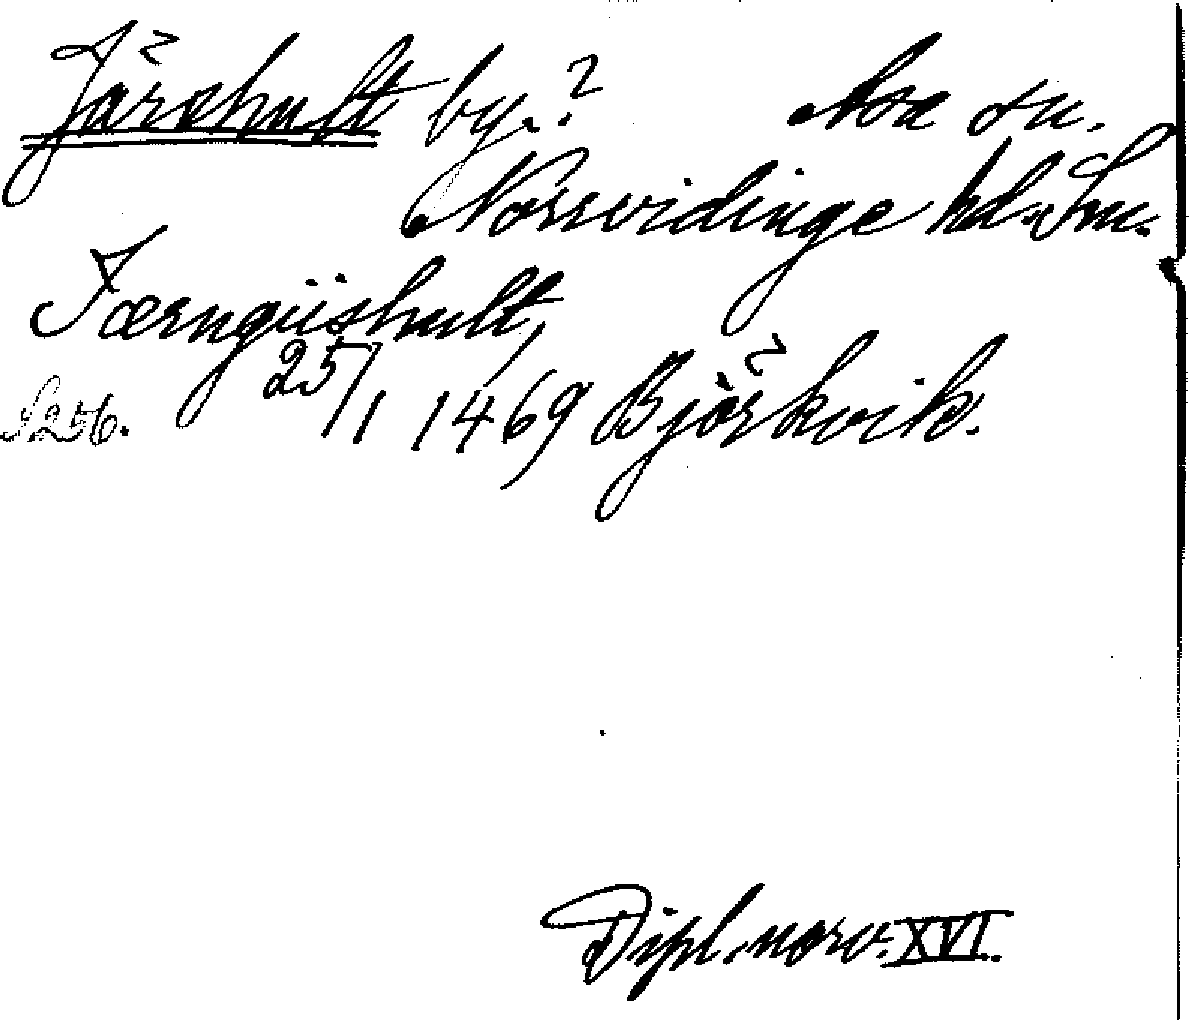 Järshult by.? Asa sn.
Norrvidinge hd. Sm.
Iærngiishult,
25/1 1469 Björkvik.
S. 256.
Dipl. norv. XVI.